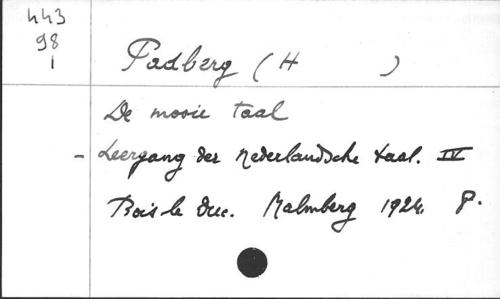 443
98
1
Padberg (H )
De mooie taal
- Leergang der Nederlandsche taal. IV
Bois le Duc. Malmberg 1924. 8.